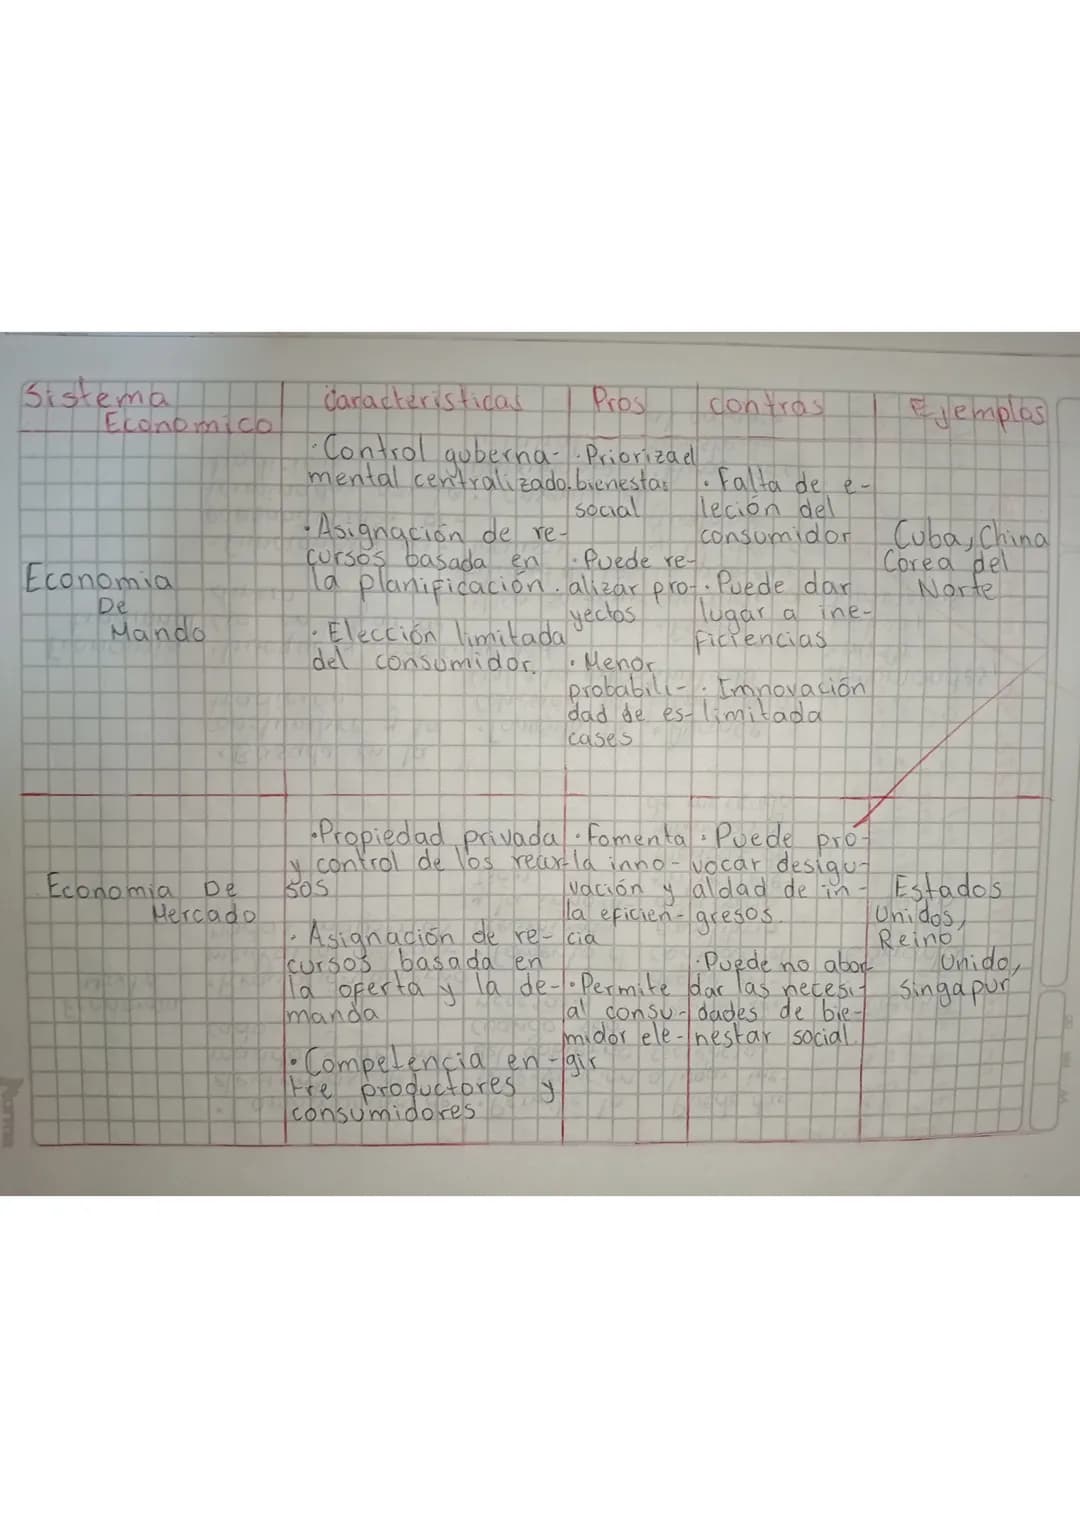 Sistema Economico
Caracteristicas
Pros
contras
Ejemplos
Economia
De
Mando
· Control guberna-
mental centralizado.
· Asignación de re-
cursos basada en
la planificación.
· Elección limitada
del consumidor.
· Priorizael
bienestar
social
· Puede re-
alizar pro-
yectos
· Menor
probabili-
dad de es-
cases
· Falta de e-
leción del
consumidor
· Puede dar
lugar a ine-
ficiencias
· Imnovación
limitada
Cuba, China
Corea del
Norte
Economia De
Mercado
· Propiedad privada
y control de los recur-
sos
· Asignación de re-
cursos basada en
la oferta y la de-
manda
· Competencia en-
tre productores y
consumidores
· Fomenta
la inno-
vación y
la eficien-
cia
· Permite
al consu-
midor ele-
gir
· Puede pro-
vocar desigu-
aldad de in-
gresos.
· Puede no abor-
dar las necesi-
dades de bie-
nestar social.
Estados
Unidos,
Reino
Unido,
singapur